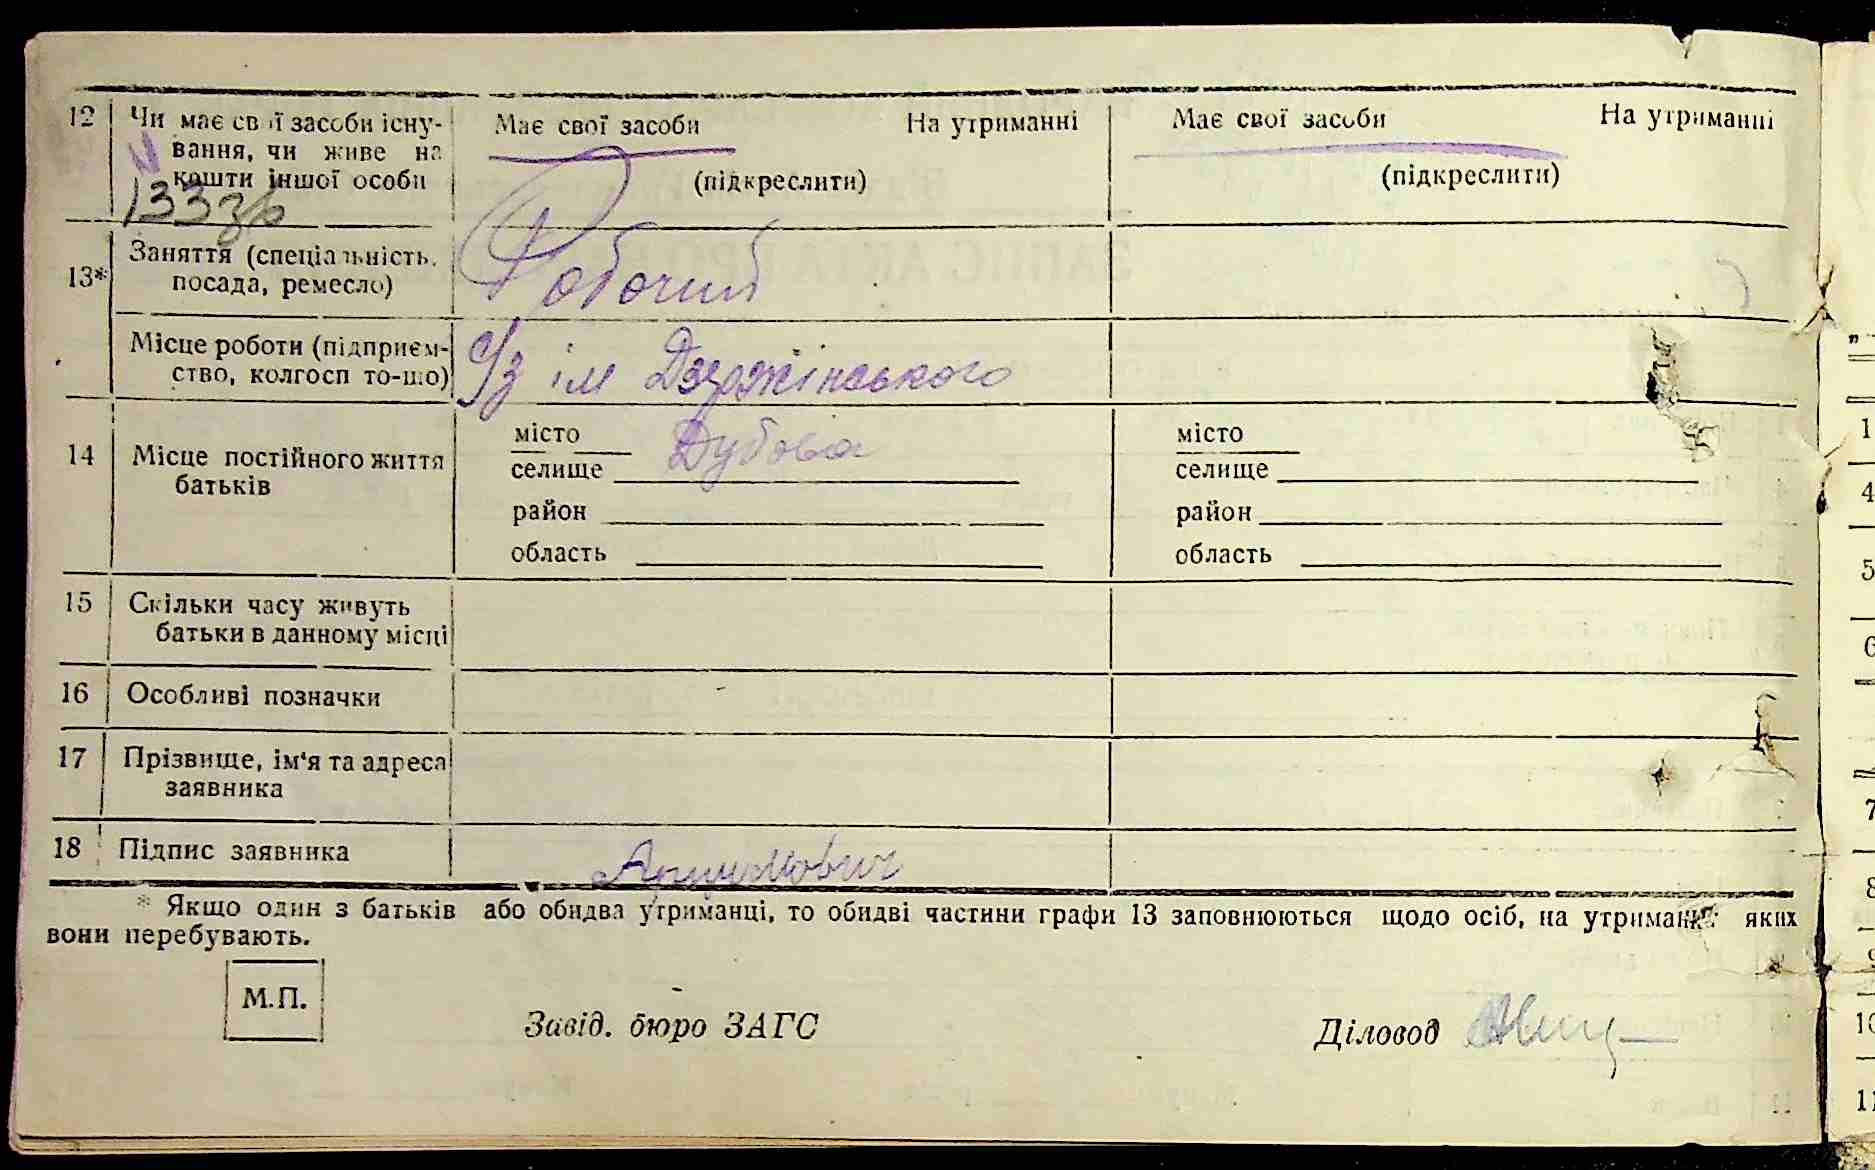 12 Чи має свої засоби існу- Має свої засоби На утриманні Має свої засоби На утриманні
вання, чи живе на
кошти іншої особи (підкреслити) (підкреслити)
133
13* Заняття (спеціальність, Робочий
посада, ремесло)
Місце роботи (підприєм- с/з ім Дзержінського
ство, колгосп то-що)
14 Місце постійного життя місто Дубова місто
батьків селище селище
район район
область область
15 Скільки часу живуть
батьки в данному місці
16 Особливі позначки
17 Прізвище, ім'я та адреса
заявника
18 Підпис заявника
* Якщо один з батьків або обидва утриманці, то обидві частини графи 13 заповнюються щодо осіб, на утриманні яких
вони перебувають.
М.П.
Завід. бюро ЗАГС Діловод
1
4
5
6
7
8
9
10
11